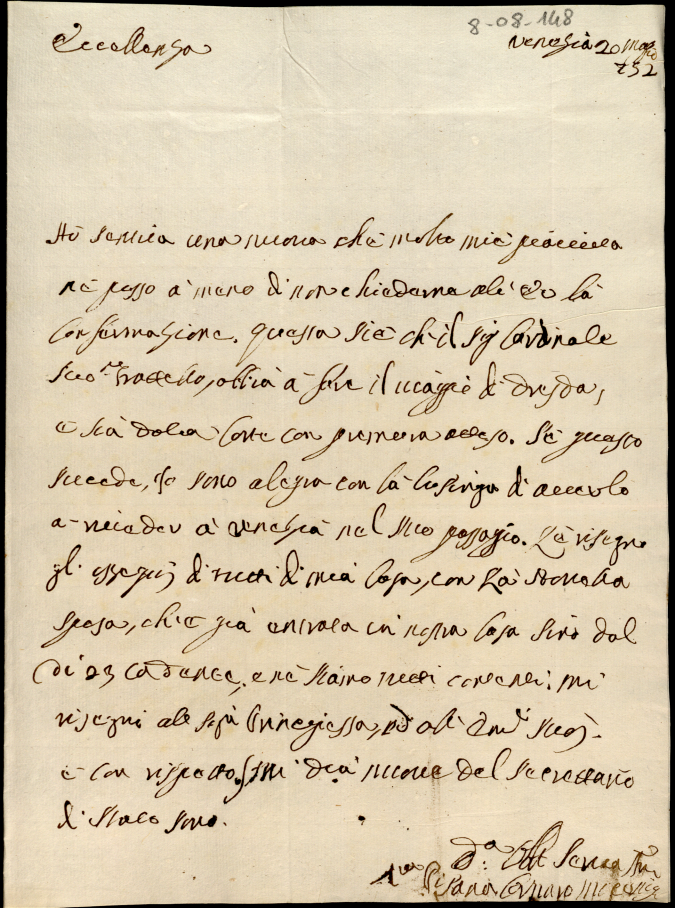 8-08-148
Eccellenza
Venezia 20 Maggio
752
Hò sentita una nuova che molto mi è piaciuta
nè posso à meno di non chiederne alè EV la
Confermazione. questa si è ch'il Sig Cardinale
Suo Fratello, abbia à fare il viaggio di Dresda,
e sia dolla Corte con premura atteso. Sè questo
succede, Io sono alegra con la lusinga di averlo
a rivedere à Venezia nel suo passaggio. Lè rasegno
gl'ossequij di tutti di mià Casa, con la novella
sposa, ch'è già entrata in nostra Casa sino dal
di 23 cadente, e nè siamo tutti contenti: mi
rasegni alè Sigà Principessa, alì Suoi
e con rispetto, mi dià nuove del Secrettario
di Stato sono.
Di VE
Pisana Cornaro Mocenigo